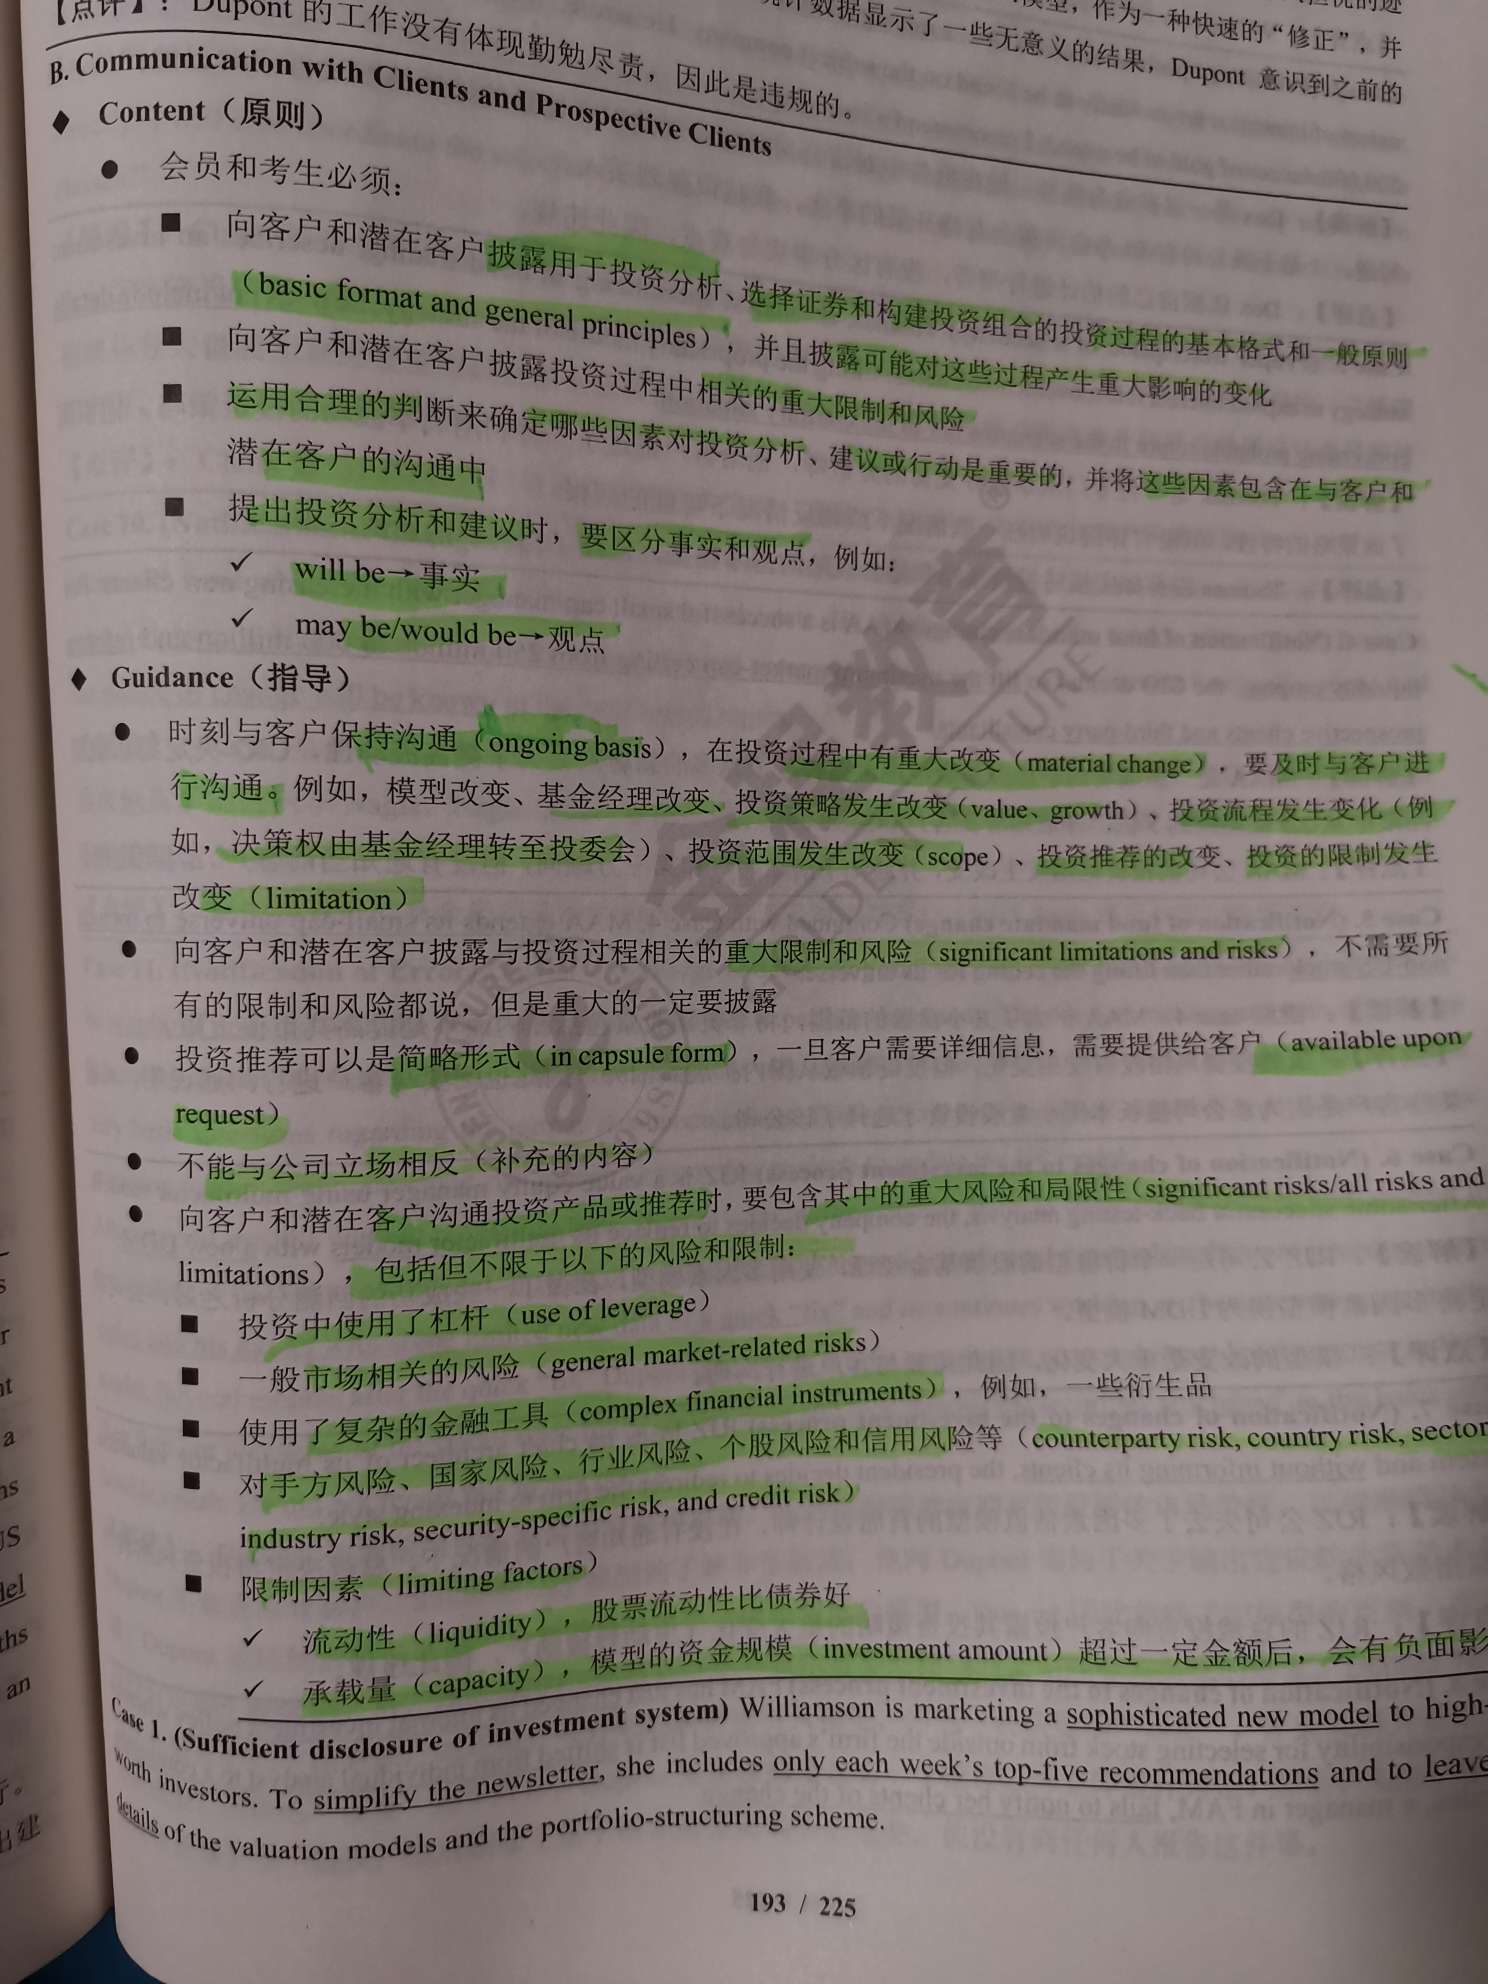 【点评】：Dupont 的工作没有体现勤勉尽责，因此是违规的。
模型，作为一种快速的“修正”，并
统计数据显示了一些无意义的结果，Dupont 意识到之前的
B. Communication with Clients and Prospective Clients
◆ Content（原则）
● 会员和考生必须：
■ 向客户和潜在客户披露用于投资分析、选择证券和构建投资组合的投资过程的基本格式和一般原则
（basic format and general principles），并且披露可能对这些过程产生重大影响的变化
■ 向客户和潜在客户披露投资过程中相关的重大限制和风险
■ 运用合理的判断来确定哪些因素对投资分析、建议或行动是重要的，并将这些因素包含在与客户和
潜在客户的沟通中
■ 提出投资分析和建议时，要区分事实和观点，例如：
✓ will be→事实
✓ may be/would be→观点
◆ Guidance（指导）
● 时刻与客户保持沟通（ongoing basis），在投资过程中有重大改变（material change），要及时与客户进
行沟通。例如，模型改变、基金经理改变、投资策略发生改变（value、growth）、投资流程发生变化（例
如，决策权由基金经理转至投委会）、投资范围发生改变（scope）、投资推荐的改变、投资的限制发生
改变（limitation）
● 向客户和潜在客户披露与投资过程相关的重大限制和风险（significant limitations and risks），不需要所
有的限制和风险都说，但是重大的一定要披露
● 投资推荐可以是简略形式（in capsule form），一旦客户需要详细信息，需要提供给客户（available upon
request）
● 不能与公司立场相反（补充的内容）
● 向客户和潜在客户沟通投资产品或推荐时，要包含其中的重大风险和局限性（significant risks/all risks and
limitations），包括但不限于以下的风险和限制：
■ 投资中使用了杠杆（use of leverage）
■ 一般市场相关的风险（general market-related risks）
■ 使用了复杂的金融工具（complex financial instruments），例如，一些衍生品
■ 对手方风险、国家风险、行业风险、个股风险和信用风险等（counterparty risk, country risk, sector
industry risk, security-specific risk, and credit risk）
■ 限制因素（limiting factors）
✓ 流动性（liquidity），股票流动性比债券好
✓ 承载量（capacity），模型的资金规模（investment amount）超过一定金额后，会有负面影
Case 1. (Sufficient disclosure of investment system) Williamson is marketing a sophisticated new model to high-
worth investors. To simplify the newsletter, she includes only each week's top-five recommendations and to leave
details of the valuation models and the portfolio-structuring scheme.
193 / 225